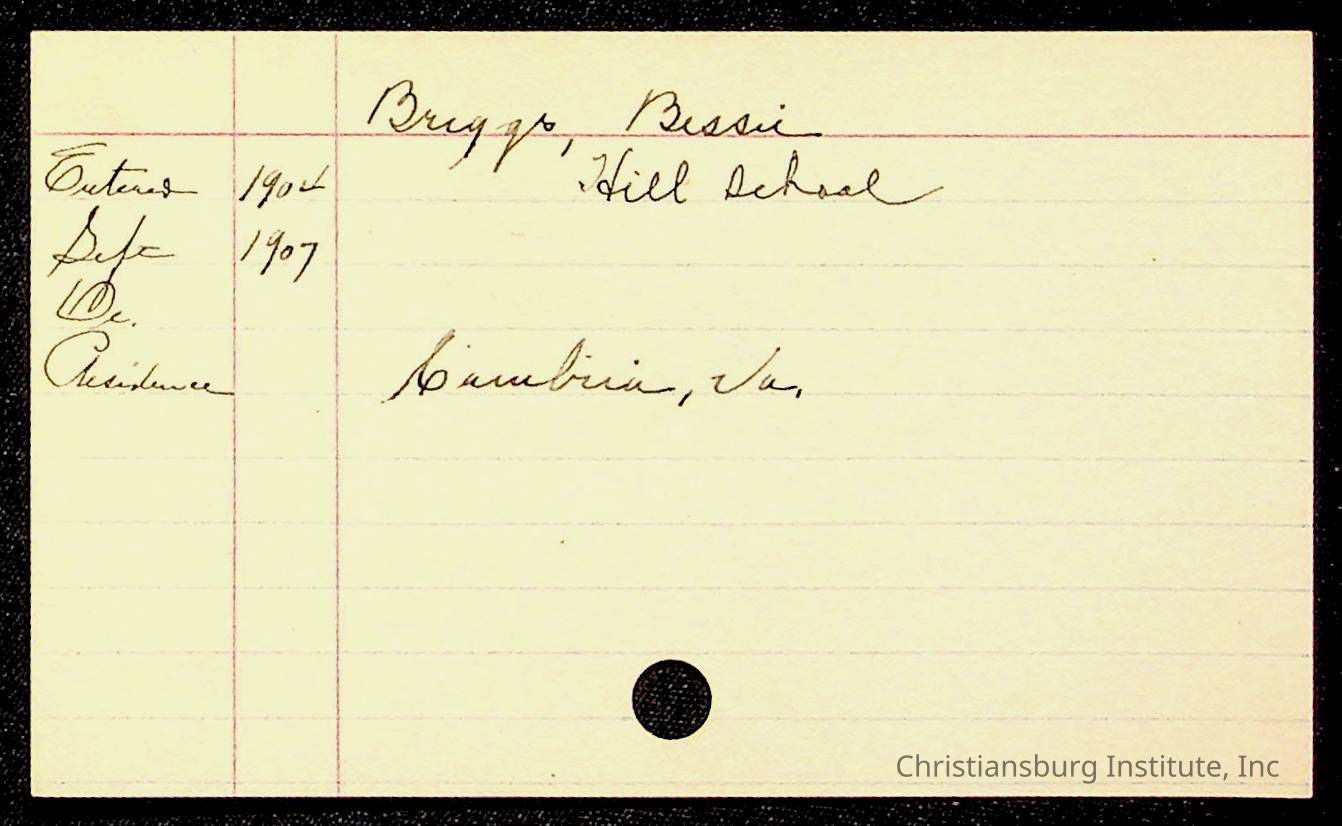 Briggs, Bessie
Entered 1904 Hill School
Left 1907
Residence Cambria, Va.
Christiansburg Institute, Inc